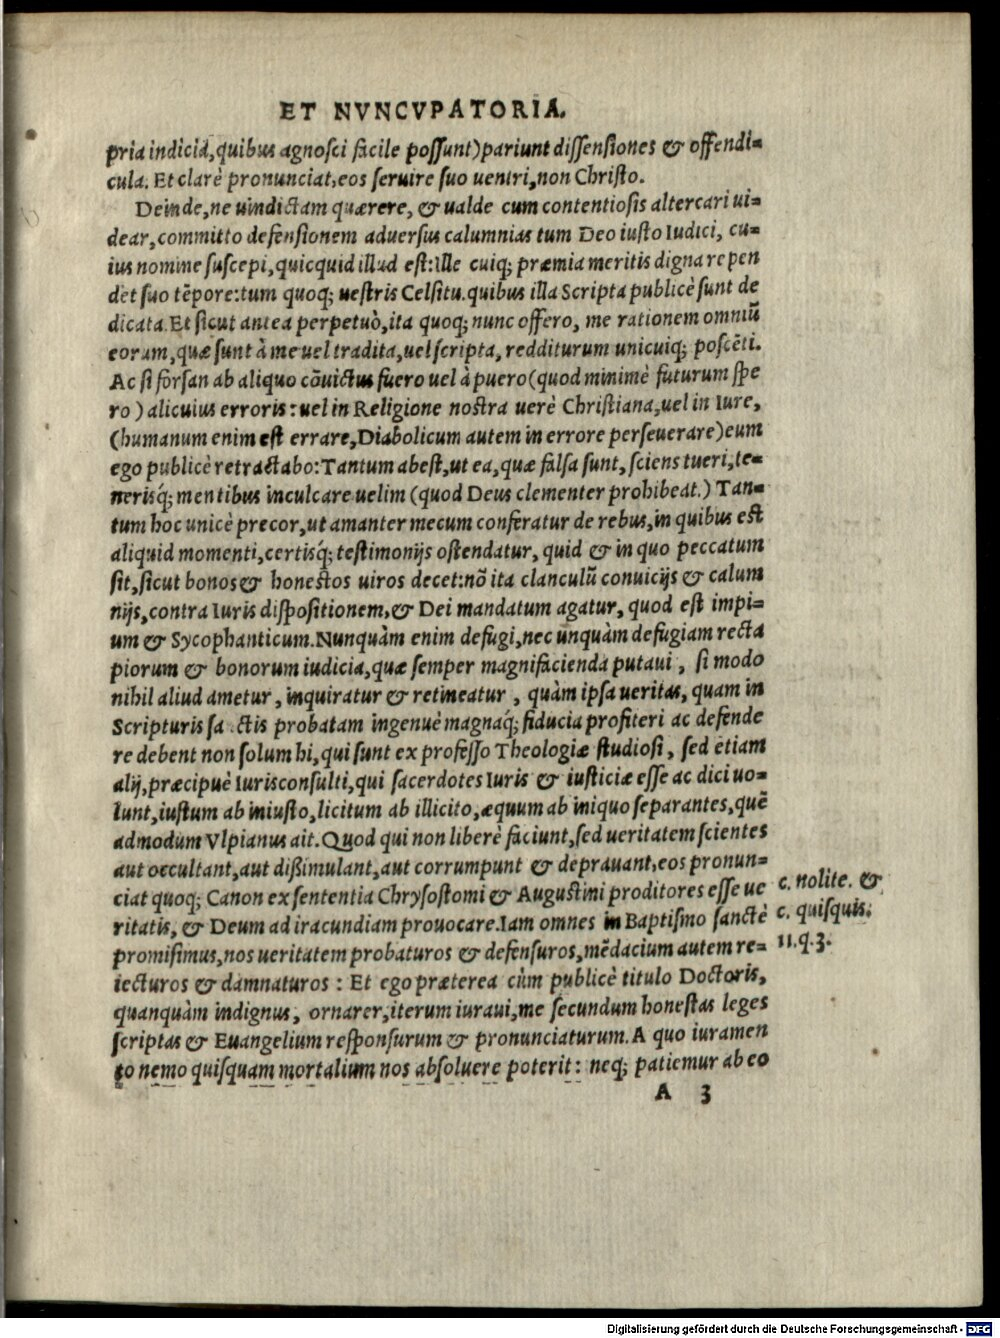 ET NVNCVPATORIA.
pria indicia, quibus agnosci facile possunt) pariunt dissensiones & offendi=
cula. Et clarè pronunciat, eos seruire suo uentri, non Christo.
Deinde, ne uindictam quærere, & ualde cum contentiosis altercari ui=
dear, committo defensionem aduersus calumnias tum Deo iusto Iudici, cu=
ius nomine suscepi, quicquid illud est: ille cuiq; præmia meritis digna repen
det suo tẽpore: tum quoq; uestris Celsitu. quibus illa Scripta publicè sunt de
dicata. Et sicut antea perpetuò, ita quoq; nunc offero, me rationem omniũ
eorum, quæ sunt à me uel tradita, uel scripta, redditurum unicuiq; poscẽti.
Ac si forsan ab aliquo cõuictus fuero uel à puero (quod minimè futurum spe
ro) alicuius erroris: uel in Religione nostra uerè Christiana, uel in Iure,
(humanum enim est errare, Diabolicum autem in errore perseuerare) eum
ego publicè retractabo: Tantum abest, ut ea, quæ falsa sunt, sciens tueri, te=
nerisq́; mentibus inculcare uelim (quod Deus clementer prohibeat.) Tan=
tum hoc unicè precor, ut amanter mecum conferatur de rebus, in quibus est
aliquid momenti, certisq́; testimonijs ostendatur, quid & in quo peccatum
sit, sicut bonos & honestos uiros decet: nõ ita clanculũ conuicijs & calum
nijs, contra Iuris dispositionem, & Dei mandatum agatur, quod est impi=
um & Sycophanticum. Nunquàm enim defugi, nec unquàm defugiam recta
piorum & bonorum iudicia, quæ semper magnifacienda putaui, si modo
nihil aliud ametur, inquiratur & retineatur, quàm ipsa ueritas, quam in
Scripturis sa ctis probatam ingenuè magnaq́; fiducia profiteri ac defende
re debent non solum hi, qui sunt ex professo Theologiæ studiosi, sed etiam
alij, præcipuè Iurisconsulti, qui sacerdotes Iuris & iusticiæ esse ac dici uo=
lunt, iustum ab iniusto, licitum ab illicito, æquum ab iniquo separantes, quẽ
admodum Vlpianus ait. Quod qui non liberè faciunt, sed ueritatem scientes
aut occultant, aut dissimulant, aut corrumpunt & deprauant, eos pronun=
ciat quoq; Canon ex sententia Chrysostomi & Augustini proditores esse ue
ritatis, & Deum ad iracundiam prouocare. Iam omnes in Baptismo sanctè
promisimus, nos ueritatem probaturos & defensuros, mẽdacium autem re=
iecturos & damnaturos: Et ego præterea cùm publicè titulo Doctoris,
quanquàm indignus, ornarer, iterum iuraui, me secundum honestas leges
scriptas & Euangelium responsurum & pronunciaturum. A quo iuramen
to nemo quisquam mortalium nos absoluere poterit: neq; patiemur ab eo
c. nolite. &
c. quisquis.
11. q. 3.
A 3
Digitalisierung gefördert durch die Deutsche Forschungsgemeinschaft - DFG